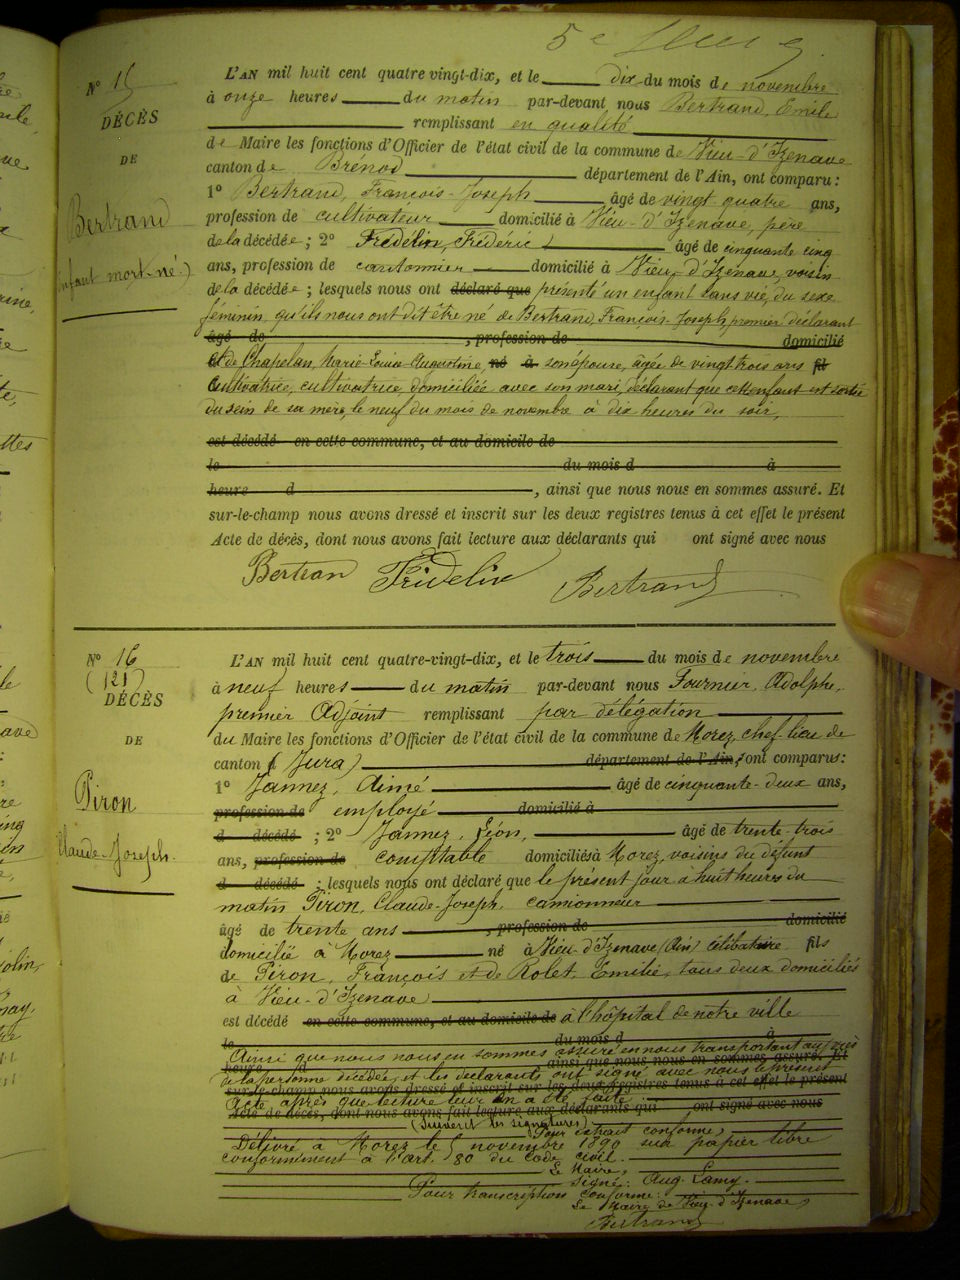 N° 15
DÉCÈS
DE
Bertrand
(enfant mort-né)
L'AN mil huit cent quatre vingt-dix, et le dix du mois de novembre
à onze heures du matin par-devant nous Bertrand, Emile
remplissant en qualité
de Maire les fonctions d'Officier de l'état civil de la commune de Vieu-d'Izenave
canton de Brénod département de l'Ain, ont comparu :
1° Bertrand, François-Joseph âgé de vingt-quatre ans,
profession de cultivateur domicilié à Vieu-d'Izenave, père
de la décédée ; 2° Fridelin, Frédéric âgé de cinquante cinq
ans, profession de cantonnier domicilié à Vieu-d'Izenave, voisin
de la décédée ; lesquels nous ont déclaré que présenté un enfant sans vie, du sexe
féminin, qu'ils nous ont dit être né de Bertrand, François-Joseph premier déclarant
âgé de , profession de domicilié
et de Chapelan, Marie-Louise Augustine, né à son épouse, âgée de vingt trois ans fil
cultivatrice, cultivatrice, domiciliée avec son mari, déclarant que cet enfant est sortie
du sein de sa mère, le neuf du mois de novembre à dix heures du soir,
est décédé en cette commune, et au domicile de
le du mois d à
heure d , ainsi que nous nous en sommes assuré. Et
sur-le-champ nous avons dressé et inscrit sur les deux registres tenus à cet effet le présent
Acte de décès, dont nous avons fait lecture aux déclarants qui ont signé avec nous
Bertran Fridelin Bertrand
N° 16
(121)
DÉCÈS
DE
Piron
Claude-Joseph.
L'AN mil huit cent quatre-vingt-dix, et le trois du mois de novembre
à neuf heures du matin par-devant nous Fournier, Adolphe,
premier Adjoint remplissant par délégation
du Maire les fonctions d'Officier de l'état civil de la commune de Morez, chef-lieu de
canton (Jura) département de l'Ain, ont comparus :
1° Jannez, Aimé âgé de cinquante-deux ans,
profession de employé domicilié à
d décédé ; 2° Jannez, Léon, âgé de trente-trois
ans, profession de comptable domiciliés à Morez, voisins du défunt
d décédé ; lesquels nous ont déclaré que le présent jour à huit heures du
matin Piron, Claude-Joseph, camionneur
âgé de trente ans , profession de domicilié
domicilié à Morez né à Vieu-d'Izenave (Ain) célibataire fils
de Piron, François et de Rolet, Emilie, tous deux domiciliés
à Vieu-d'Izenave
est décédé en cette commune, et au domicile de à l'hôpital de notre ville
le du mois d à
Ainsi que nous nous en sommes assuré en nous transportant auprès
heure d ainsi que nous nous en sommes assuré. Et
de la personne décédée, et les déclarants ont signé avec nous le présent
sur-le-champ nous avons dressé et inscrit sur les deux registres tenus à cet effet le présent
Acte après que lecture leur en a été faite :
Acte de décès, dont nous avons fait lecture aux déclarants qui ont signé avec nous
(Suivent les signatures)
Pour extrait conforme,
Délivré à Morez le 5 novembre 1890 sur papier libre
conformément à l'art. 80 du Code civil.
Le Maire,
Signé : Aug. Lamy.
Pour transcription conforme :
Le Maire de Vieu-d'Izenave,
Bertrand